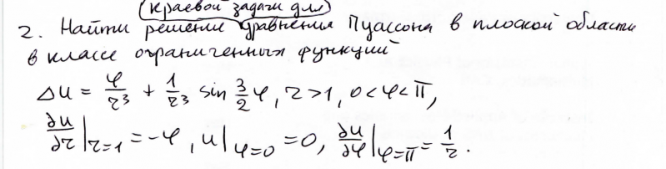 (краевой задачи для)
2. Найти решение уравнения Пуассона в плоской области
в классе ограниченных функций
Δu = φ/r³ + 1/r³ sin 3/2 φ, r>1, 0<φ<π,
∂u/∂r|r=1 = -φ, u|φ=0 = 0, ∂u/∂φ|φ=π = 1/r.